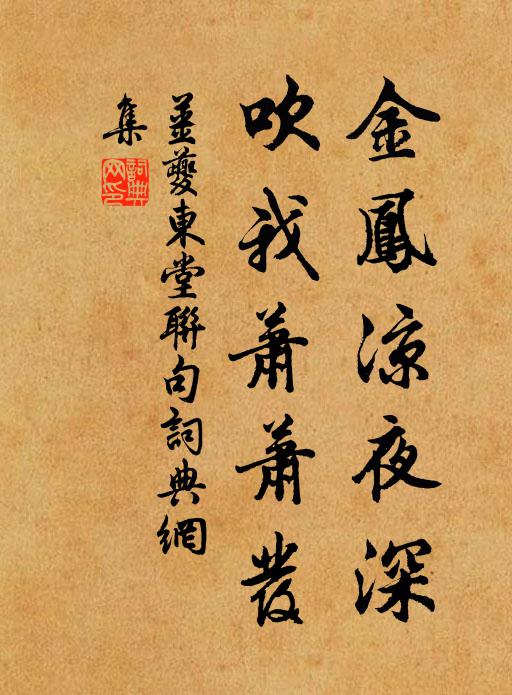 金鳳涼夜深
吹我蕭蕭發
薑夔東堂聯句詞典網
集
詞典
网印